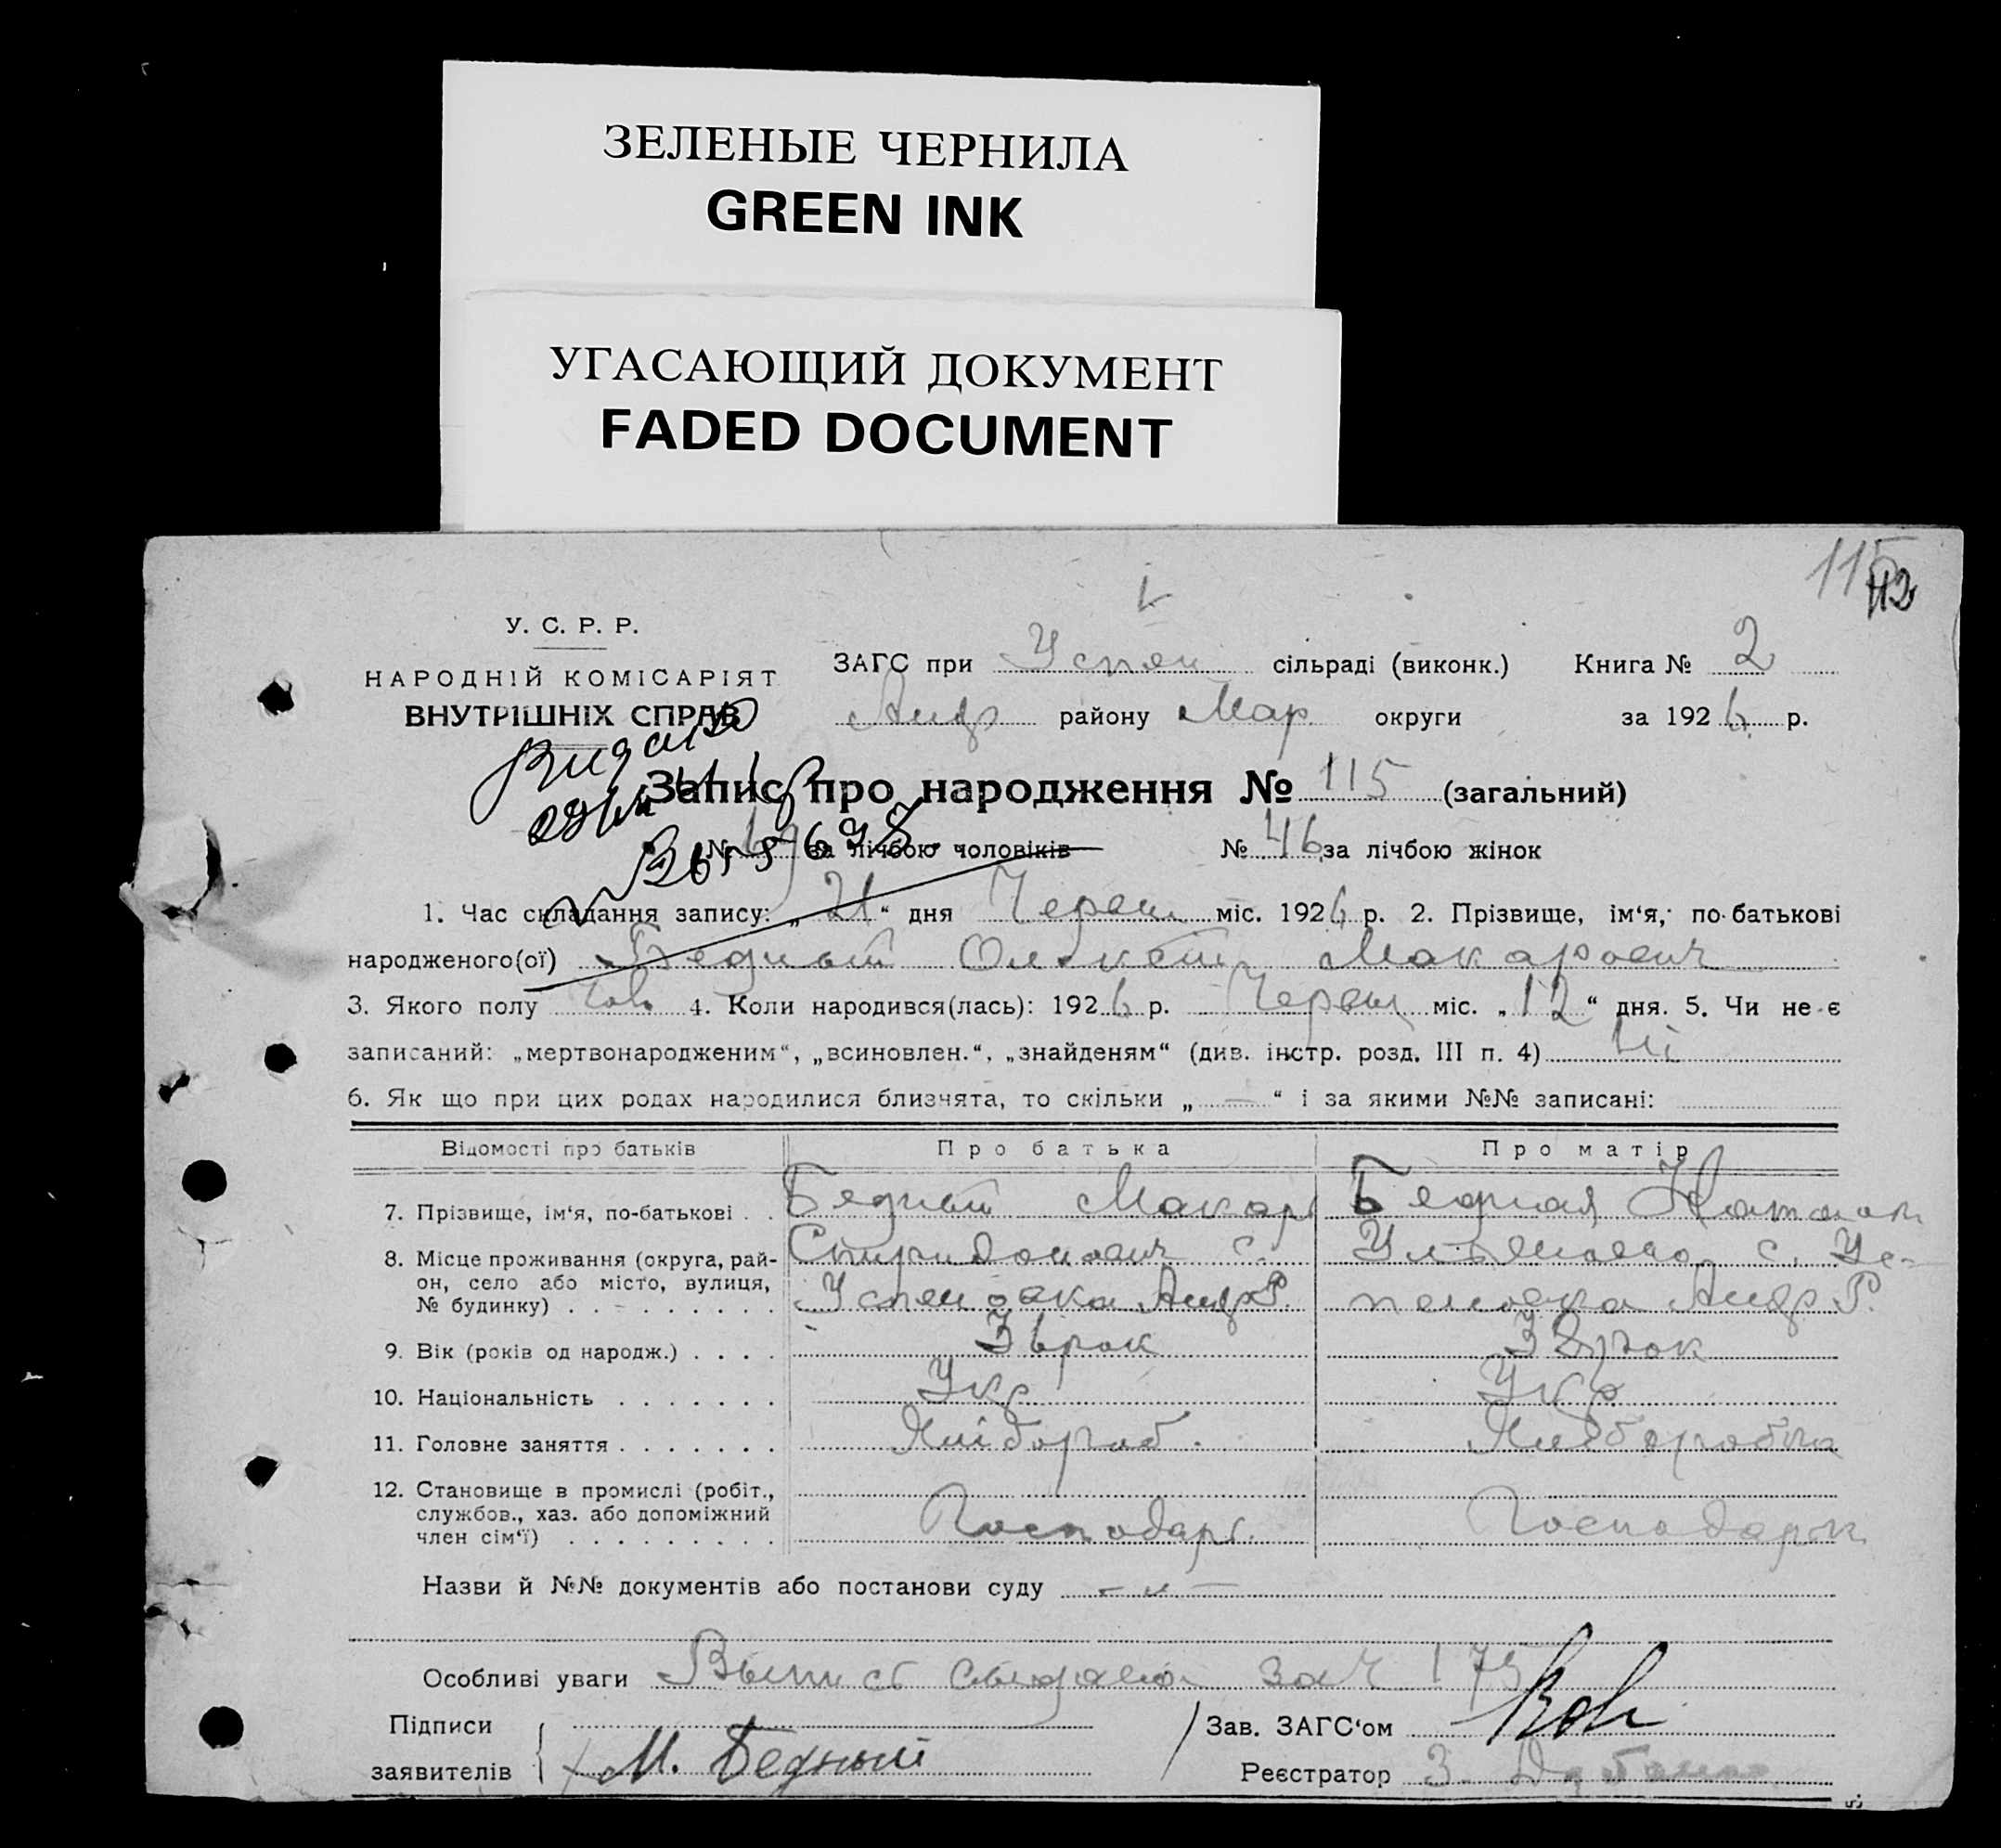 ЗЕЛЕНЫЕ ЧЕРНИЛА
GREEN INK
УГАСАЮЩИЙ ДОКУМЕНТ
FADED DOCUMENT
115
112
У. С. Р. Р.
НАРОДНІЙ КОМІСАРІЯТ
ВНУТРІШНІХ СПРАВ
ЗАГС при Успен сільраді (виконк.) Книга № 2
Андр району Мар округи за 1926 р.
Запис про народження № 115 (загальний)
№ за лічбою чоловіків № 46 за лічбою жінок
1. Час складання запису: „21“ дня Червн міс. 1926 р. 2. Прізвище, ім‘я, по-батькові
народженого(ої) Бедный Макарович
3. Якого полу Чов. 4. Коли народився(лась): 1926 р. Червн міс. „12“ дня. 5. Чи не є
записаний: „мертвонародженим“, „всиновлен.“, „знайденям“ (див. інстр. розд. III п. 4) Ні
6. Як що при цих родах народилися близнята, то скільки „ — “ і за якими №№ записані:
Відомості про батьків Про батька Про матір
7. Прізвище, ім‘я, по-батькові . . Бедный Макар Бедная
8. Місце проживання (округа, рай- Спиридонович с. Ульяновна с. Ус-
он, село або місто, вулиця,
№ будинку) . . . . . . . . . Успеновка Андр Р. пеновка Андр Р.
9. Вік (років од народж.) . . . . 36 рок 38 рок
10. Національність . . . . . . . Укр Укр
11. Головне заняття . . . . . . . Хлібороб. Хлібороб
12. Становище в промислі (робіт.,
службов., хаз. або допоміжний
член сім‘ї) . . . . . . . . . Господарь Господарк
Назви й №№ документів або постанови суду
Особливі уваги Выпись за Ч 175
Підписи
заявителів М. Бедный
Зав. ЗАГС‘ом
Реєстратор З.